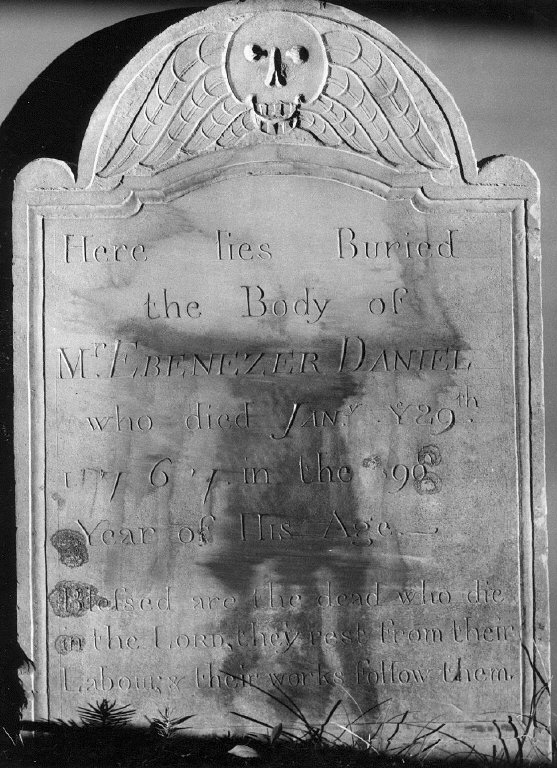 Here lies Buried
the Body of
Mr. EBENEZER DANIEL
who died JANy. ye 29th.
1767. in the 90
Year of His Age.—
Blefsed are the dead who die
in the LORD, they rest from their
Labour, & their works follow them.